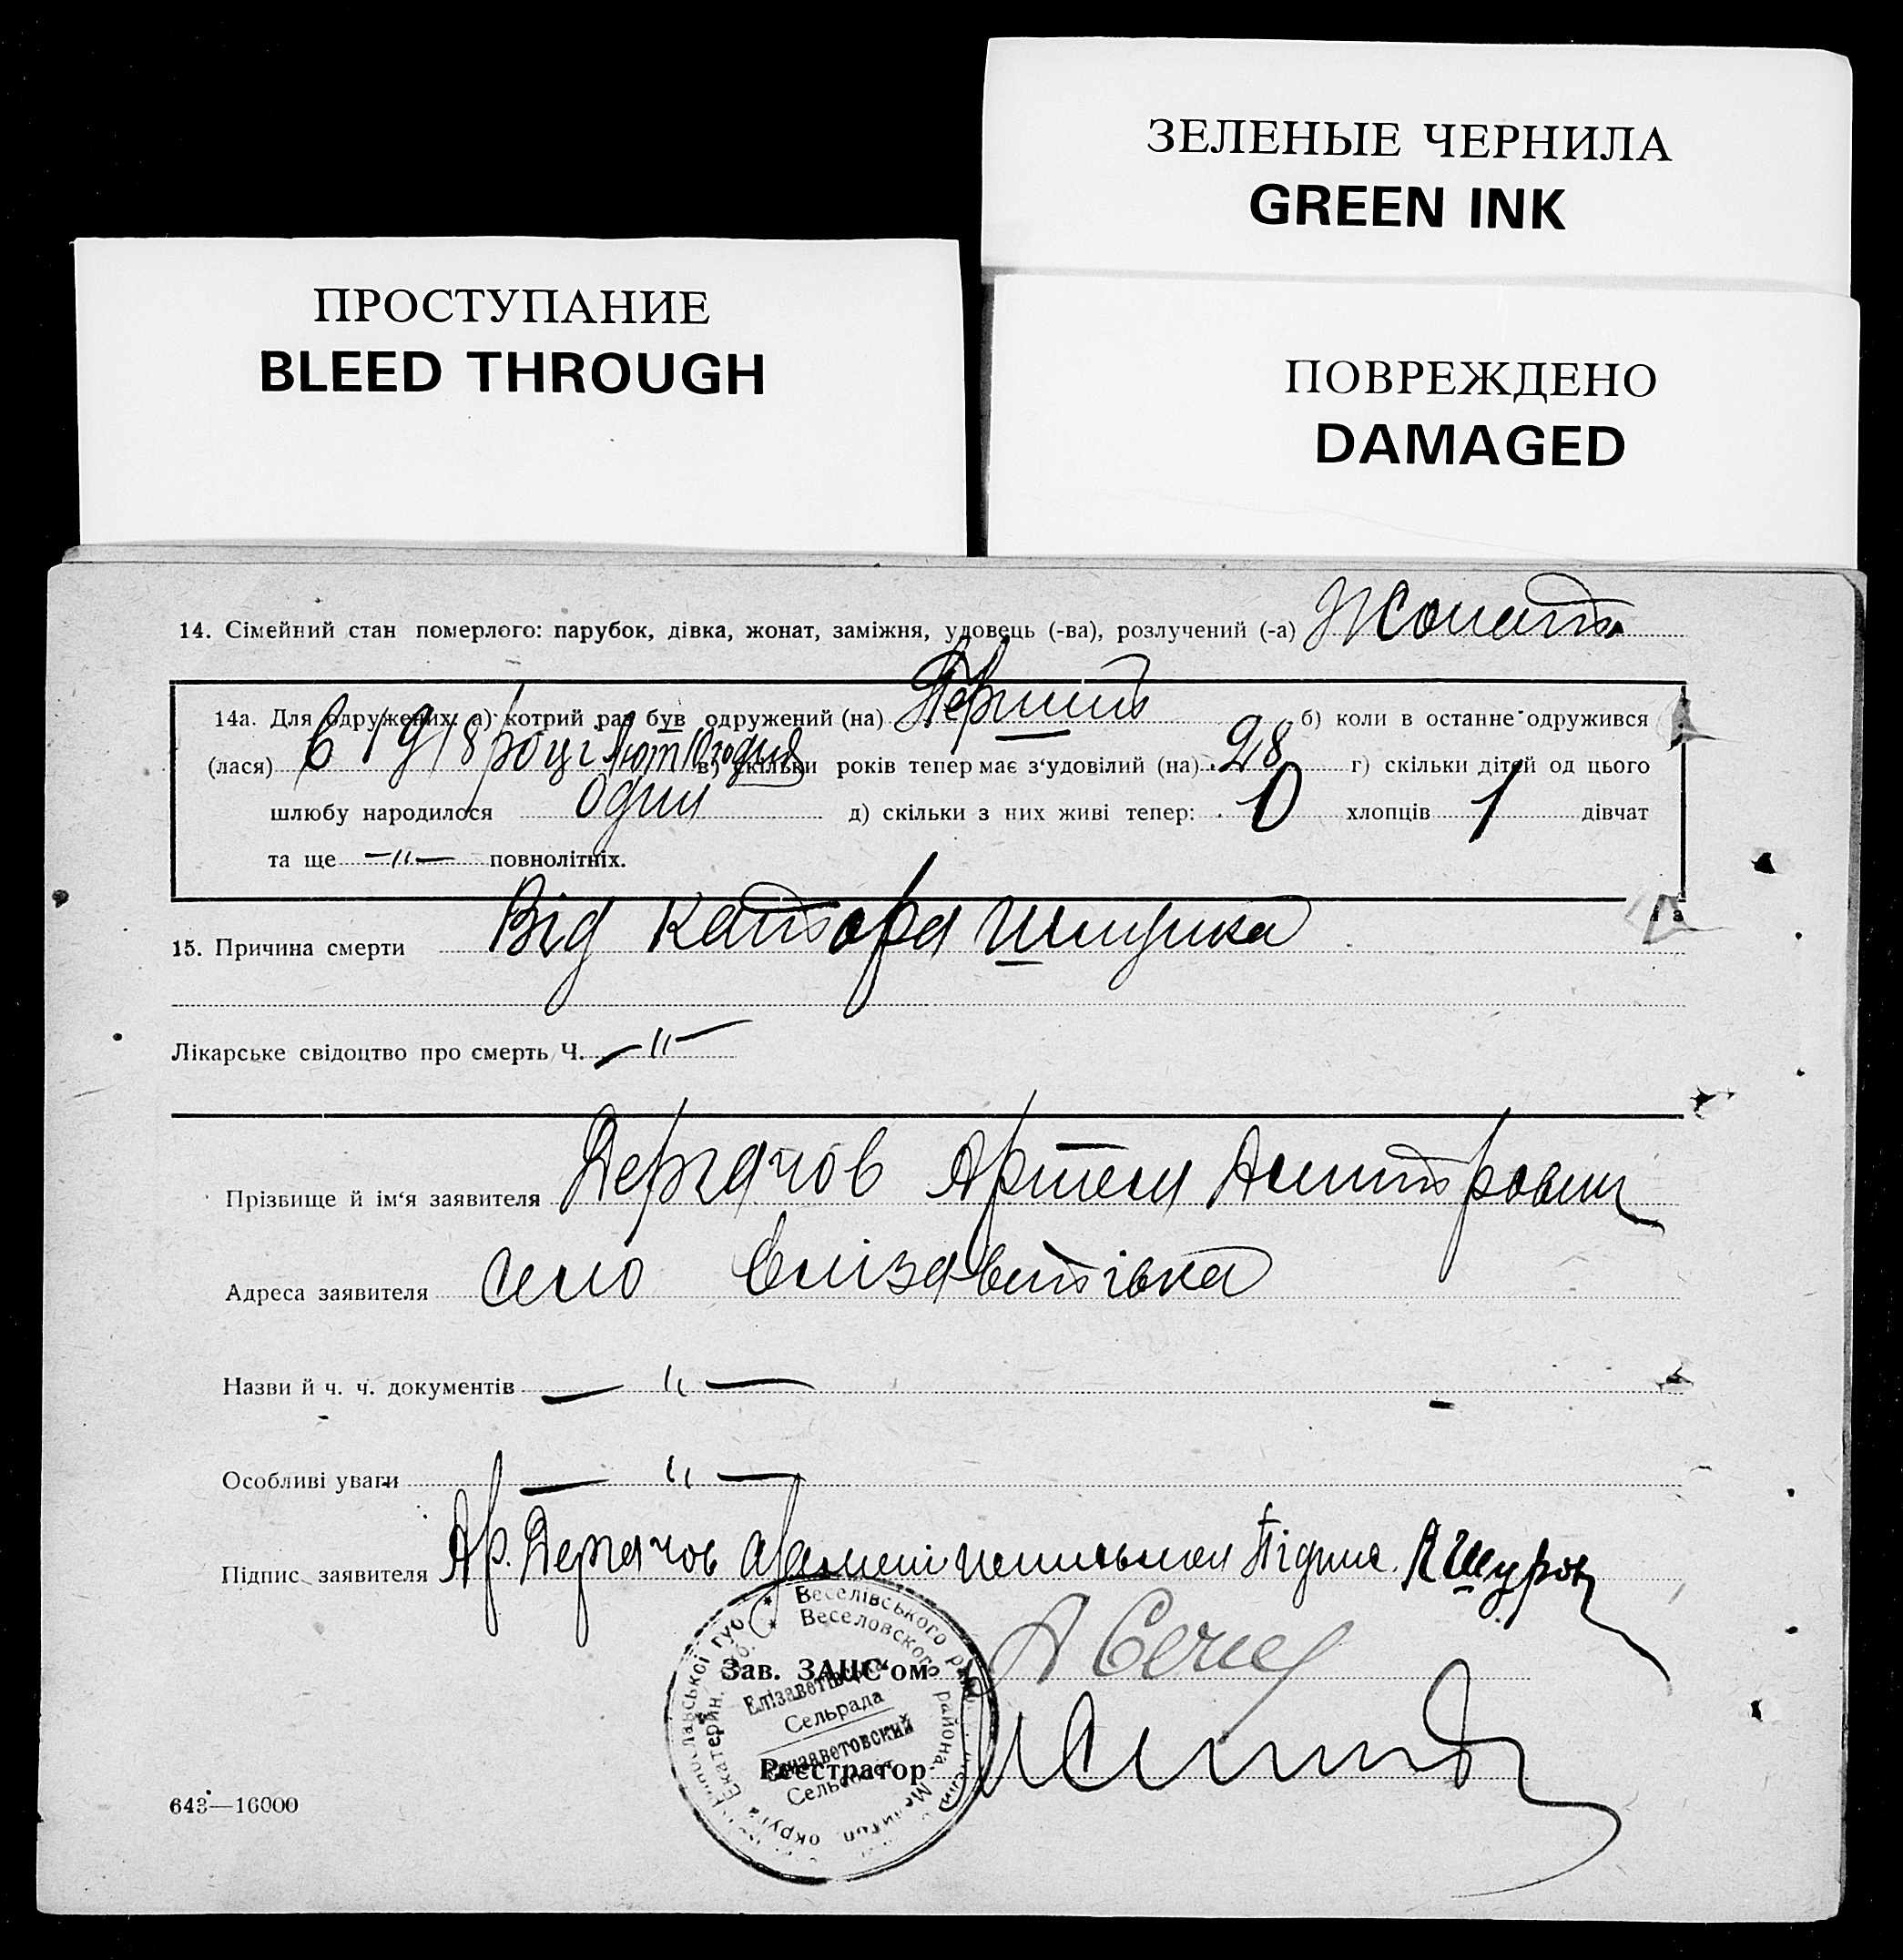 ЗЕЛЕНЫЕ ЧЕРНИЛА
GREEN INK
ПРОСТУПАНИЕ
BLEED THROUGH
ПОВРЕЖДЕНО
DAMAGED
14. Сімейний стан померлого: парубок, дівка, жонат, заміжня, удовець (-ва), розлучений (-а) Жонат
14а. Для одружених: а) котрий раз був одружений (на) Перший б) коли в останнє одружився
(лася) в 1918 році Лют 10 дня в) скільки років тепер має з'удовілий (на) 28 г) скільки дітей од цього
шлюбу народилося один д) скільки з них живі тепер: 0 хлопців 1 дівчат
та ще —"— повнолітніх.
15. Причина смерти Від катара шлунка
Лікарське свідоцтво про смерть Ч. —"—
Прізвище й ім'я заявителя Дергачов Артем
Адреса заявителя село Єлізаветівка
Назви й ч. ч. документів — " —
Особливі уваги — " —
Підпис заявителя Ар. Дергачов
Веселівського
Веселовского района
Зав. ЗАЦС'ом
Елізаветівська
Сельрада
Елизаветовский
Сельсовет
Реєстратор
643—16000